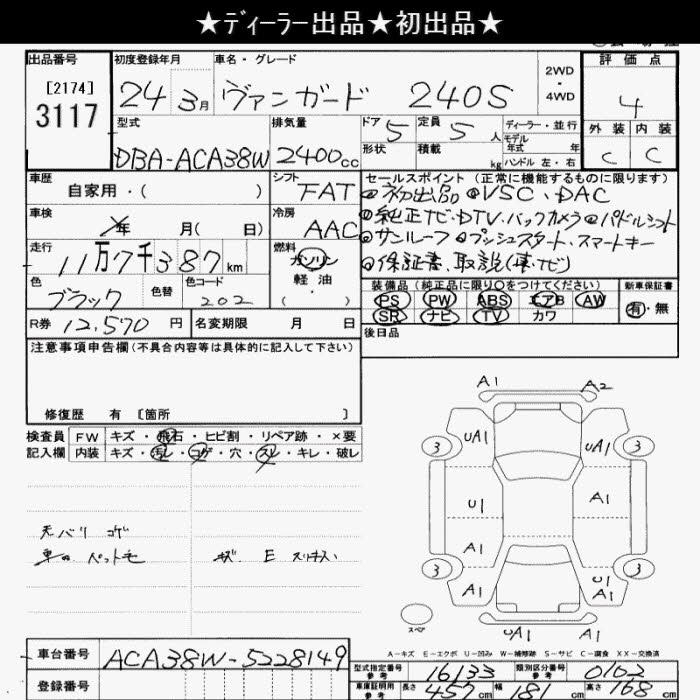 ★ディーラー出品★初出品★
出品番号 初度登録年月 車名・グレード 評価点
[2174]
3117 24 3月 ヴァンガード 240S 2WD・4WD 4
型式 排気量 ドア 5 定員 5人 ディーラー・並行 外装 内装
DBA-ACA38W 2400cc 形状 積載 kg モデル年式 年 ハンドル 左・右 C C
車歴 シフト セールスポイント(正常に機能するものに限ります)
自家用・( ) FAT 初出品 VSC、DAC
車検 年 月( 日) 冷房 AAC 純正ナビ・DTV、バックカメラ パドルシフト
走行 11万7千387km 燃料 サンルーフ プッシュスタート、スマートキー
ガソリン 保証書、取説(車・ナビ)
色 ブラック 色替 色コード 202 軽油
装備品(純正品に限り○をつけてください) 新車保証書
PS PW ABS エアB AW 有・無
SR ナビ TV カワ
R券 12,570円 名変期限 月 日 後日品
注意事項申告欄(不具合内容等は具体的に記入して下さい)
修復歴 有 [箇所 ]
検査員 FW キズ・飛石・ヒビ割・リペア跡・×要
記入欄 内装 キズ・汚レ・コゲ・穴・スレ・キレ・破レ
天バリ コゲ
ペット毛
A1 A2
3 UA1 UA1 3
U1 A1
A1
3 A1 U1 A1 3
スペア UA1 A1
A-キズ E-エクボ U-凹み W-補修跡 S-サビ C-腐食 XX-交換済
車台番号 ACA38W-5228149
登録番号
型式指定番号 参考 16133 類別区分番号 参考 0102
車庫証明用 参考 長さ 457cm 幅 181cm 高さ 168cm